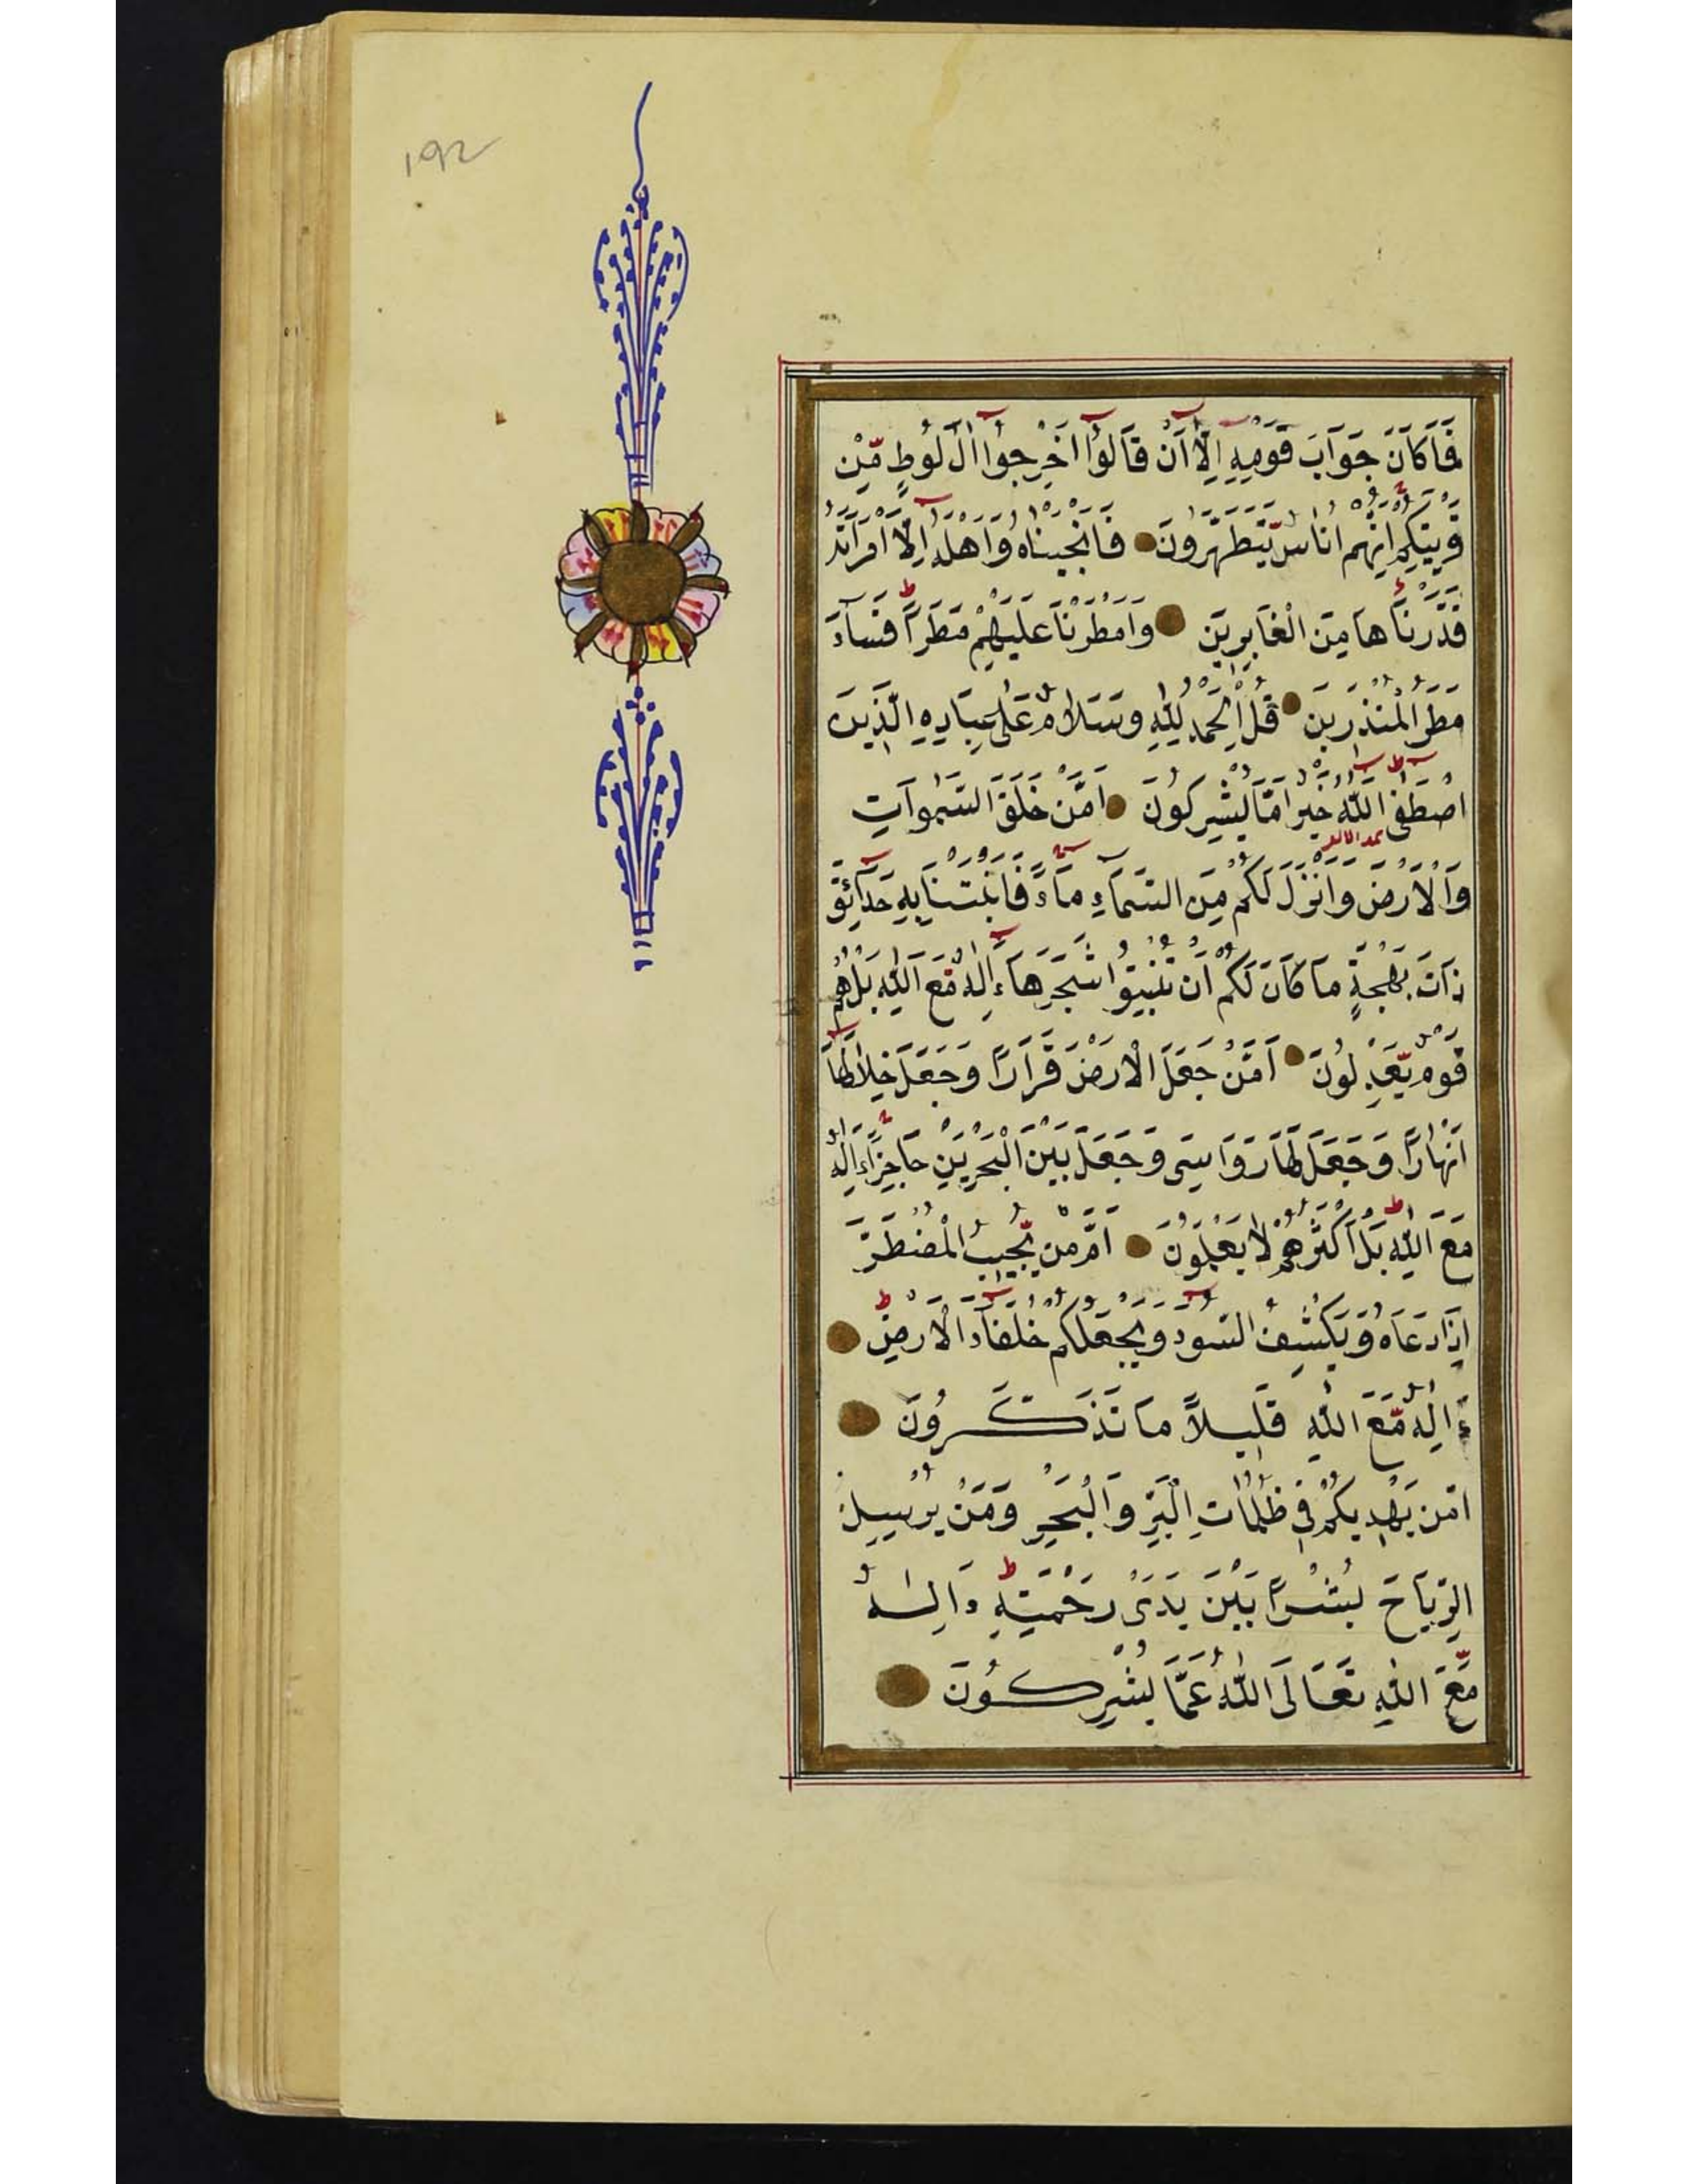 ۱۹۲
فَمَا كَانَ جَوَابَ قَوْمِهِ اِلَّا اَنْ قَالُوا اَخْرِجُوا اٰلَ لُوطٍ مِّنْ
قَرْيَتِكُمْ اِنَّهُمْ اُنَاسٌ يَّتَطَهَّرُونَ فَاَنْجَيْنَاهُ وَاَهْلَهُ اِلَّا امْرَاَتَهُ
قَدَّرْنَاهَا مِنَ الْغَابِرِينَ وَاَمْطَرْنَا عَلَيْهِمْ مَطَرًا فَسَآءَ
مَطَرُ الْمُنْذَرِينَ قُلِ الْحَمْدُ لِلّٰهِ وَسَلَامٌ عَلٰى عِبَادِهِ الَّذِينَ
اصْطَفٰى اللّٰهُ خَيْرٌ اَمَّا يُشْرِكُونَ اَمَّنْ خَلَقَ السَّمٰوَاتِ
وَالْاَرْضَ وَاَنْزَلَ لَكُمْ مِنَ السَّمَآءِ مَآءً فَاَنْبَتْنَا بِهِ حَدَآئِقَ
ذَاتَ بَهْجَةٍ مَا كَانَ لَكُمْ اَنْ تُنْبِتُوا شَجَرَهَا ءَاِلٰهٌ مَّعَ اللّٰهِ بَلْ هُمْ
قَوْمٌ يَّعْدِلُونَ اَمَّنْ جَعَلَ الْاَرْضَ قَرَارًا وَجَعَلَ خِلَالَهَا
اَنْهَارًا وَجَعَلَ لَهَا رَوَاسِىَ وَجَعَلَ بَيْنَ الْبَحْرَيْنِ حَاجِزًا ءَاِلٰهٌ
مَعَ اللّٰهِ بَلْ اَكْثَرُهُمْ لَا يَعْلَمُونَ اَمَّنْ يُّجِيبُ الْمُضْطَرَّ
اِذَا دَعَاهُ وَيَكْشِفُ السُّوءَ وَيَجْعَلُكُمْ خُلَفَآءَ الْاَرْضِ
ءَاِلٰهٌ مَّعَ اللّٰهِ قَلِيلًا مَا تَذَكَّرُونَ
اَمَّنْ يَهْدِيكُمْ فِى ظُلُمَاتِ الْبَرِّ وَالْبَحْرِ وَمَنْ يُرْسِلُ
الرِّيَاحَ بُشْرًا بَيْنَ يَدَىْ رَحْمَتِهِ ءَاِلٰهٌ
مَّعَ اللّٰهِ تَعَالَى اللّٰهُ عَمَّا يُشْرِكُونَ